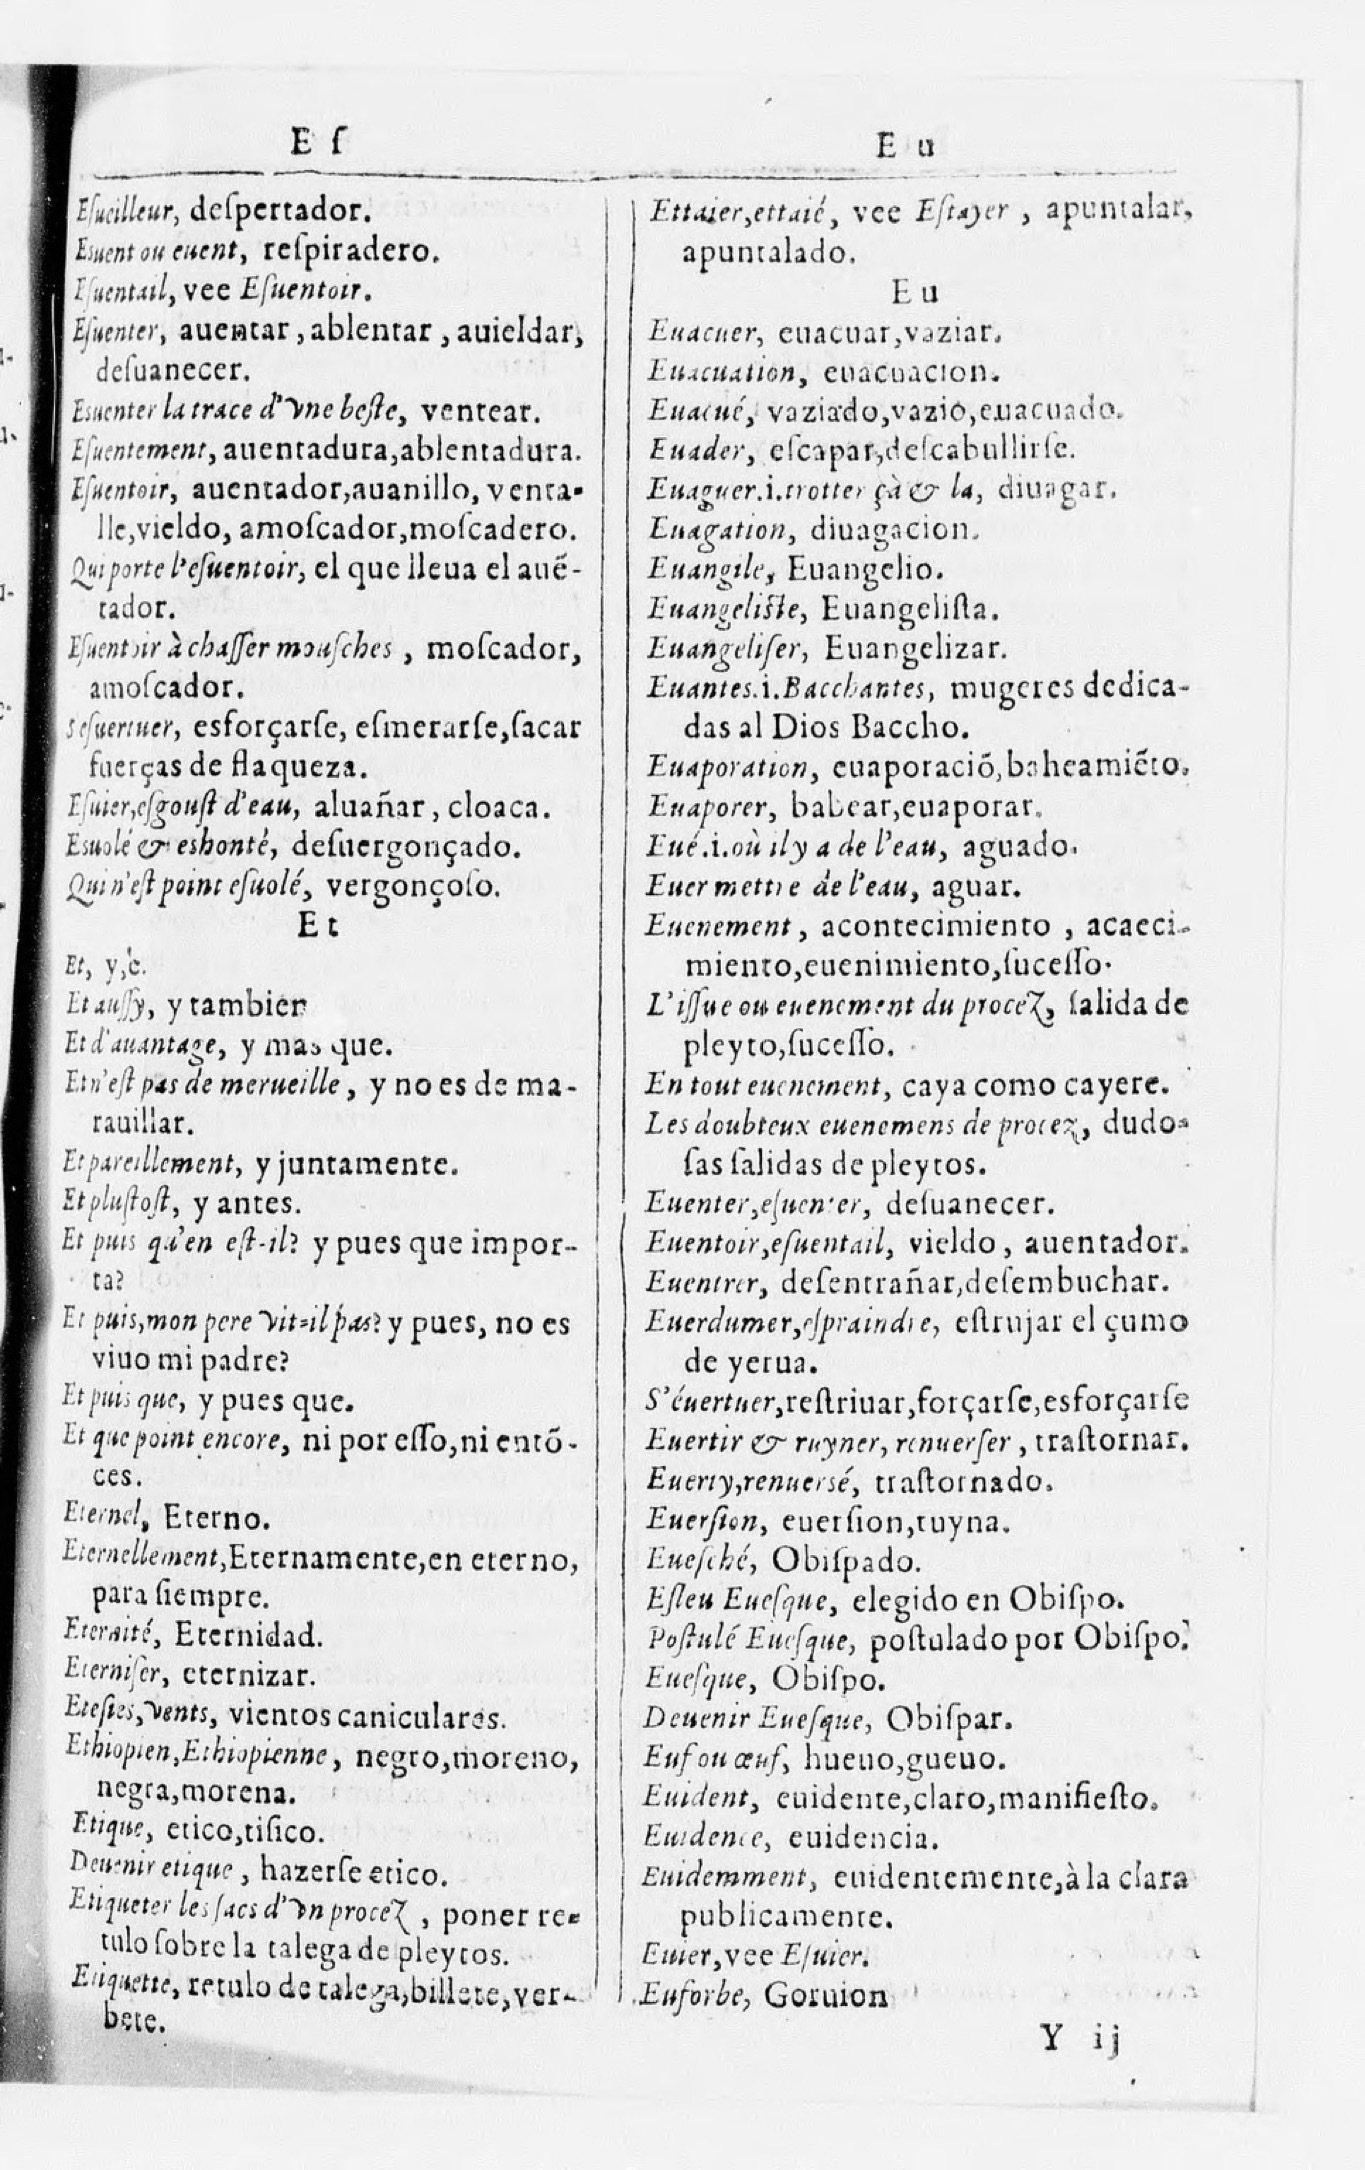 E ſ
Eſueilleur, deſpertador.
Esuent ou euent, reſpiradero.
Eſuentail, vee Eſuentoir.
Eſuenter, auentar, ablentar, auieldar,
deſuanecer.
Esuenter la trace d'vne beſte, ventear.
Eſuentement, auentadura, ablentadura.
Eſuentoir, auentador, auanillo, venta-
lle, vieldo, amoſcador, moſcadero.
Qui porte l'eſuentoir, el que lleua el auẽ-
tador.
Eſuentoir à chaſſer mouſches, moſcador,
amoſcador.
S'eſuertuer, esforçarſe, eſmerarſe, ſacar
fuerças de flaqueza.
Eſuier, eſgouſt d'eau, aluañar, cloaca.
Esuolé & eshonté, deſuergonçado.
Qui n'eſt point eſuolé, vergonçoſo.
E t
Et, y, è.
Et auſſy, y tambien
Et d'auantage, y mas que.
Et n'eſt pas de merueille, y no es de ma-
rauillar.
Et pareillement, y juntamente.
Et pluſtoſt, y antes.
Et puis qu'en eſt-il? y pues que impor-
ta?
Et puis, mon pere vit-il pas? y pues, no es
viuo mi padre?
Et puis que, y pues que.
Et que point encore, ni por eſſo, ni entõ-
ces.
Eternel, Eterno.
Eternellement, Eternamente, en eterno,
para ſiempre.
Eternité, Eternidad.
Eterniſer, eternizar.
Eteſies, vents, vientos caniculares.
Ethiopien, Ethiopienne, negro, moreno,
negra, morena.
Etique, etico, tiſico.
Deuenir etique, hazerſe etico.
Etiqueter les ſacs d'vn procez, poner re-
tulo ſobre la talega de pleytos.
Etiquette, retulo de talega, billete, ver-
bete.
E u
Ettaier, ettaié, vee Eſtayer, apuntalar,
apuntalado.
E u
Euacuer, euacuar, vaziar.
Euacuation, euacuacion.
Euacué, vaziado, vazio, euacuado.
Euader, eſcapar, deſcabullirſe.
Euaguer. i. trotter çà & la, diuagar.
Euagation, diuagacion.
Euangile, Euangelio.
Euangeliſte, Euangeliſta.
Euangeliſer, Euangelizar.
Euantes. i. Bacchantes, mugeres dedica-
das al Dios Baccho.
Euaporation, euaporaciõ, baheamiẽto.
Euaporer, babear, euaporar.
Eué. i. où il y a de l'eau, aguado.
Euer mettre de l'eau, aguar.
Euenement, acontecimiento, acaeci-
miento, euenimiento, ſuceſſo.
L'iſſue ou euenement du procez, ſalida de
pleyto, ſuceſſo.
En tout euenement, caya como cayere.
Les doubteux euenemens de procez, dudo-
ſas ſalidas de pleytos.
Euenter, eſuenter, deſuanecer.
Euentoir, eſuentail, vieldo, auentador.
Euentrer, deſentrañar, deſembuchar.
Euerdumer, eſpraindre, eſtrujar el çumo
de yerua.
S'éuertuer, reſtriuar, forçarſe, esforçarſe
Euertir & ruyner, renuerſer, traſtornar.
Euerty, renuersé, traſtornado.
Euerſion, euerſion, ruyna.
Eueſché, Obiſpado.
Eſleu Eueſque, elegido en Obiſpo.
Poſtulé Eueſque, poſtulado por Obiſpo.
Eueſque, Obiſpo.
Deuenir Eueſque, Obiſpar.
Euf ou œuf, hueuo, gueuo.
Euident, euidente, claro, manifieſto.
Euidence, euidencia.
Euidemment, euidentemente, à la clara
publicamente.
Euier, vee Eſuier.
Euforbe, Goruion
Y ij